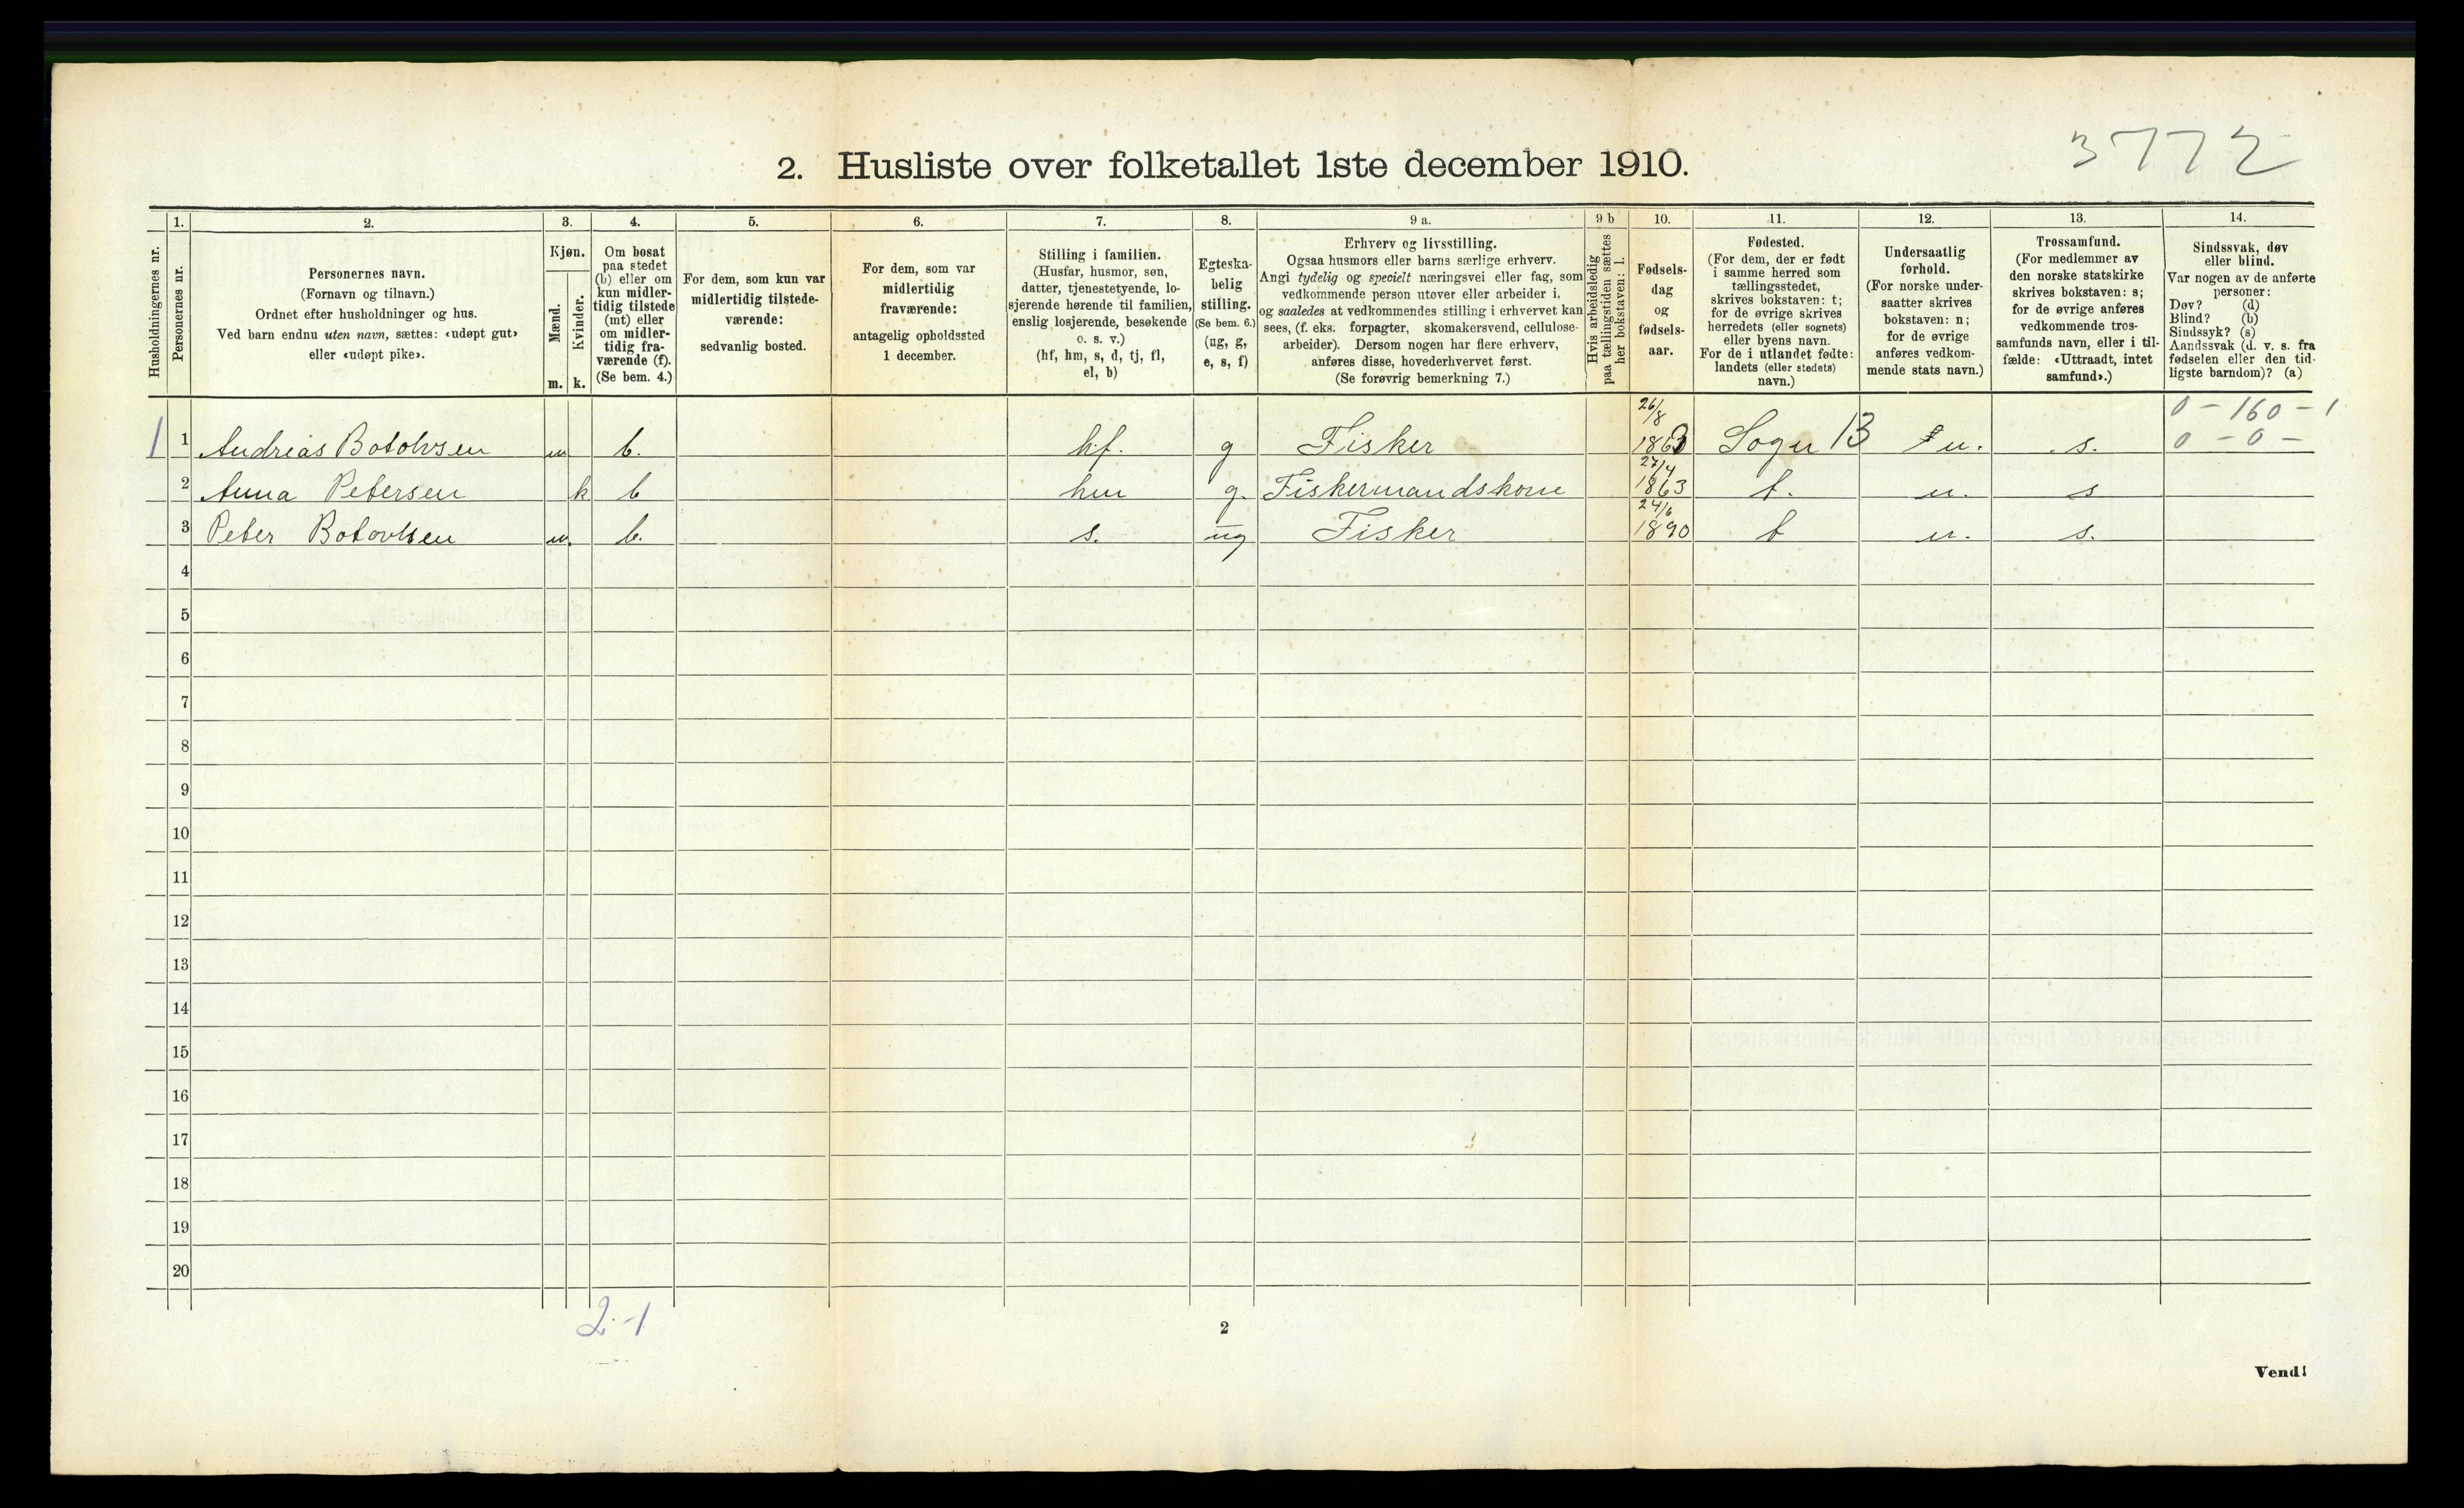 3772
2. Husliste over folketallet 1ste december 1910.
Husholdningernes nr.
1.
Personernes nr.
2.
Personernes navn.
(Fornavn og tilnavn.)
Ordnet efter husholdninger og hus.
Ved barn endnu uten navn, sættes: «udøpt gut»
eller «udøpt pike».
3.
Kjøn.
Mænd.
m.
Kvinder.
k.
4.
Om bosat
paa stedet
(b) eller om
kun midler-
tidig tilstede
(mt) eller
om midler-
tidig fra-
værende (f).
(Se bem. 4.)
5.
For dem, som kun var
midlertidig tilstede-
værende:
sedvanlig bosted.
6.
For dem, som var
midlertidig
fraværende:
antagelig opholdssted
1 december.
7.
Stilling i familien.
(Husfar, husmor, søn,
datter, tjenestetyende, lo-
sjerende hørende til familien,
enslig losjerende, besøkende
o. s. v.)
(hf, hm, s, d, tj, fl,
el, b)
8.
Egteska-
belig
stilling.
(Se bem. 6.)
(ug, g,
e, s, f)
9 a.
Erhverv og livsstilling.
Ogsaa husmors eller barns særlige erhverv.
Angi tydelig og specielt næringsvei eller fag, som
vedkommende person utøver eller arbeider i,
og saaledes at vedkommendes stilling i erhvervet kan
sees, (f. eks. forpagter, skomakersvend, cellulose-
arbeider). Dersom nogen har flere erhverv,
anføres disse, hovederhvervet først.
(Se forøvrig bemerkning 7.)
9 b
Hvis arbeidsledig
paa tællingstiden sættes
her bokstaven: l.
10.
Fødsels-
dag
og
fødsels-
aar.
11.
Fødested.
(For dem, der er født
i samme herred som
tællingsstedet,
skrives bokstaven: t;
for de øvrige skrives
herredets (eller sognets)
eller byens navn.
For de i utlandet fødte:
landets (eller stedets)
navn.)
12.
Undersaatlig
forhold.
(For norske under-
saatter skrives
bokstaven: n;
for de øvrige
anføres vedkom-
mende stats navn.)
13.
Trossamfund.
(For medlemmer av
den norske statskirke
skrives bokstaven: s;
for de øvrige anføres
vedkommende tros-
samfunds navn, eller i til-
fælde: «Uttraadt, intet
samfund».)
14.
Sindssvak, døv
eller blind.
Var nogen av de anførte
personer:
Døv? (d)
Blind? (b)
Sindssyk? (s)
Aandssvak (d. v. s. fra
fødselen eller den tid-
ligste barndom)? (a)
0 - 160 - 1
0 - 0 -
1 1 Andreas Botolvsen m b. hf. g Fisker 26/8 1863 Sogn 13 n. s.
2 Anna Petersen k b hm g. Fiskermandskone 27/4 1863 t. n. s
3 Peter Botovlsen m. b. s. ug Fisker 24/6 1890 t n. s.
4
5
6
7
8
9
10
11
12
13
14
15
16
17
18
19
20
2-1
2
Vend!